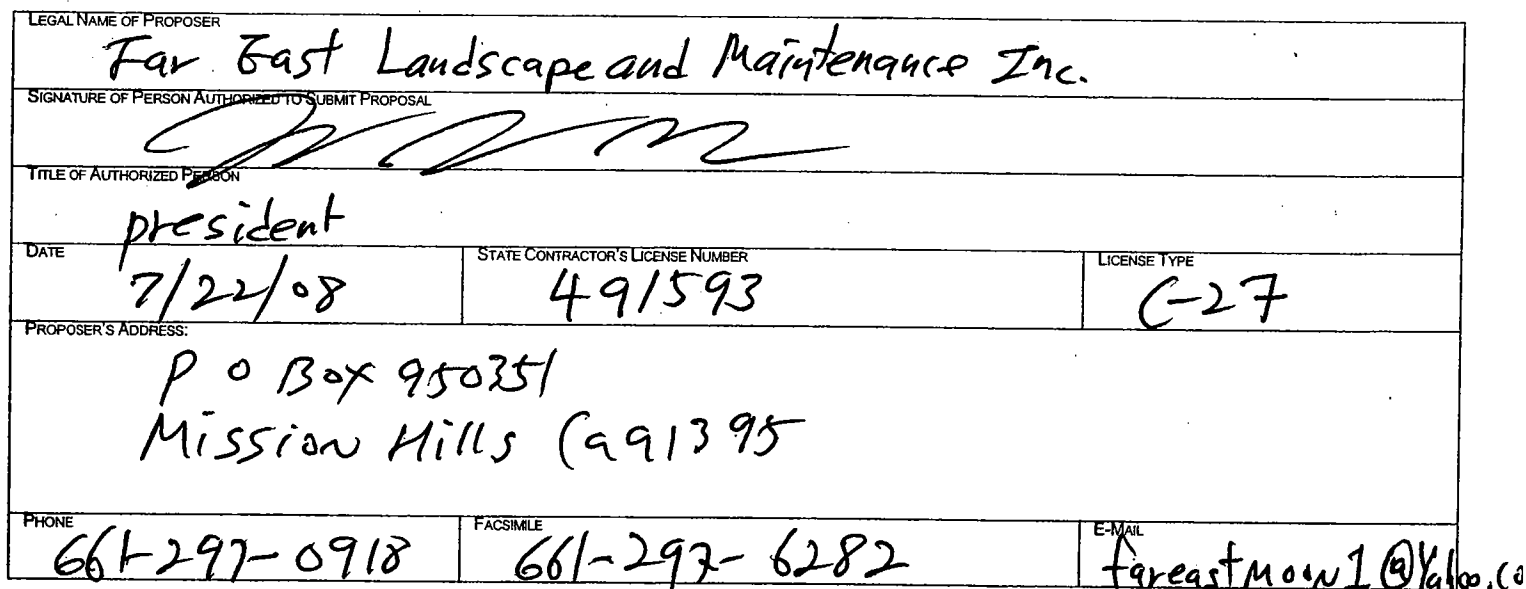 LEGAL NAME OF PROPOSER
Far East Landscape and Maintenance Inc.
SIGNATURE OF PERSON AUTHORIZED TO SUBMIT PROPOSAL
TITLE OF AUTHORIZED PERSON
president
DATE STATE CONTRACTOR'S LICENSE NUMBER LICENSE TYPE
7/22/08 491593 C-27
PROPOSER'S ADDRESS:
P O Box 950351
Mission Hills Ca 91395
PHONE FACSIMILE E-MAIL
661-297-0918 661-297-6282 fareastmoon1@Yahoo.co